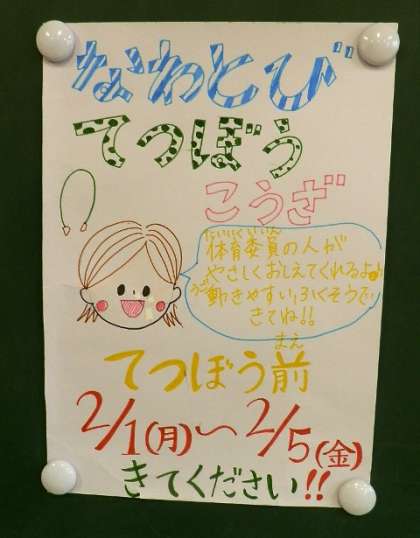 なわとび
てつぼう
こうざ
体育委員の人が
やさしくおしえてくれるよ♪
動きやすいふくそうで
きてね!!
てつぼう前
2/1(月)〜2/5(金)
きてください!!